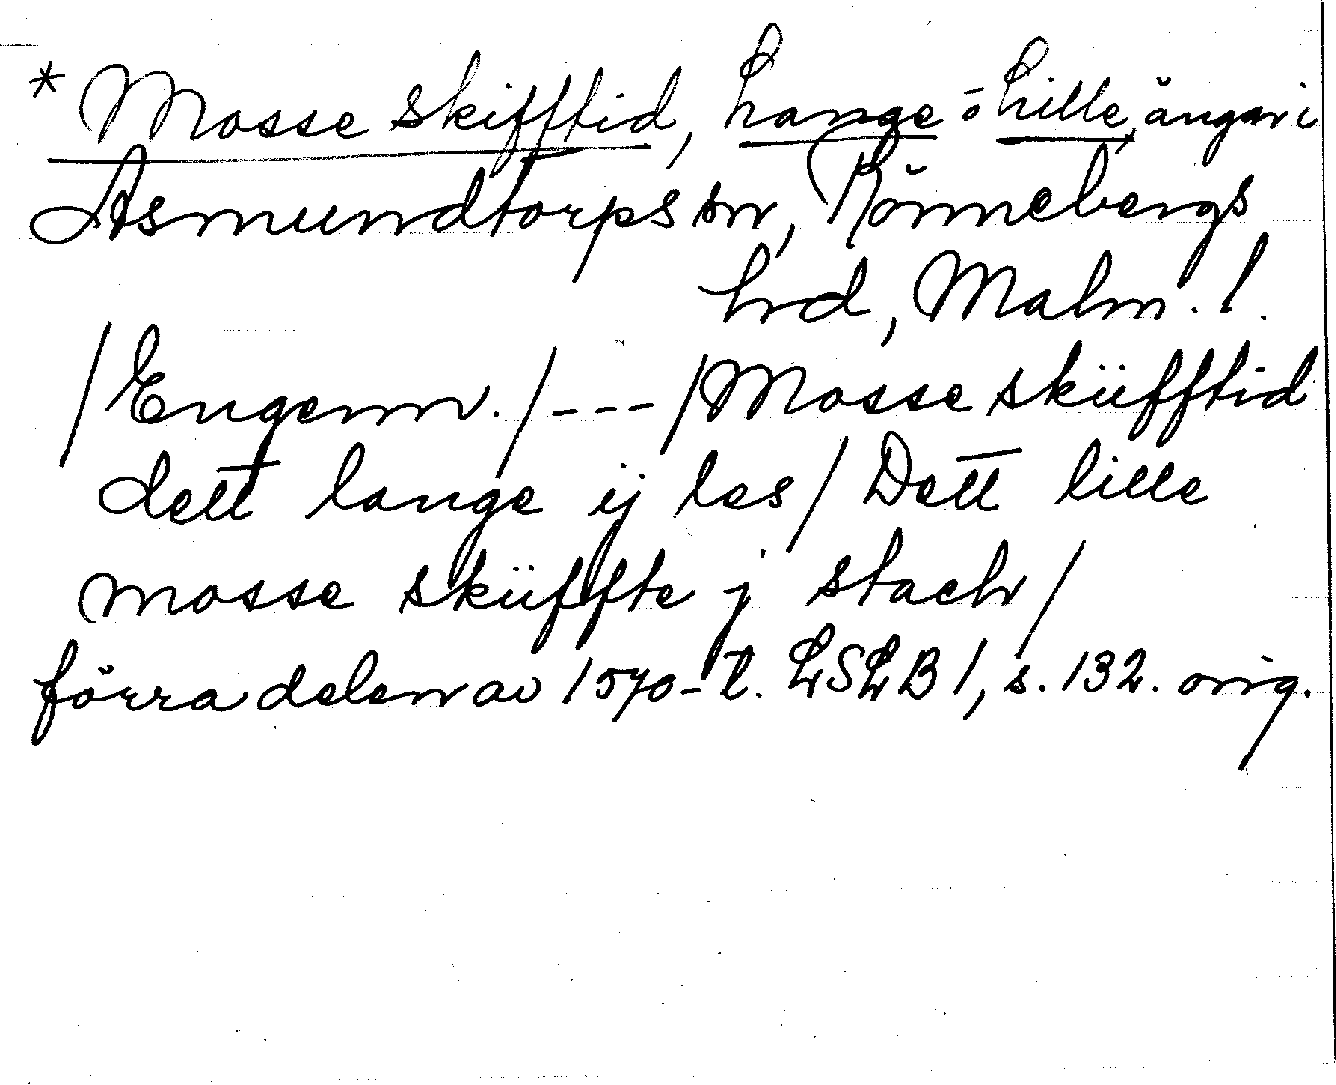 * Mosse skifftid, Lange- o Lille, ängar i
Asmundtorps sn, Rönnebergs
hd, Malm. l.
/Engenn./---/Mosse sküfftid
dett lange ij les/ Dett lille
mosse sküffte j stach/
förra delen av 1570-t. LSLB 1, s. 132. orig.